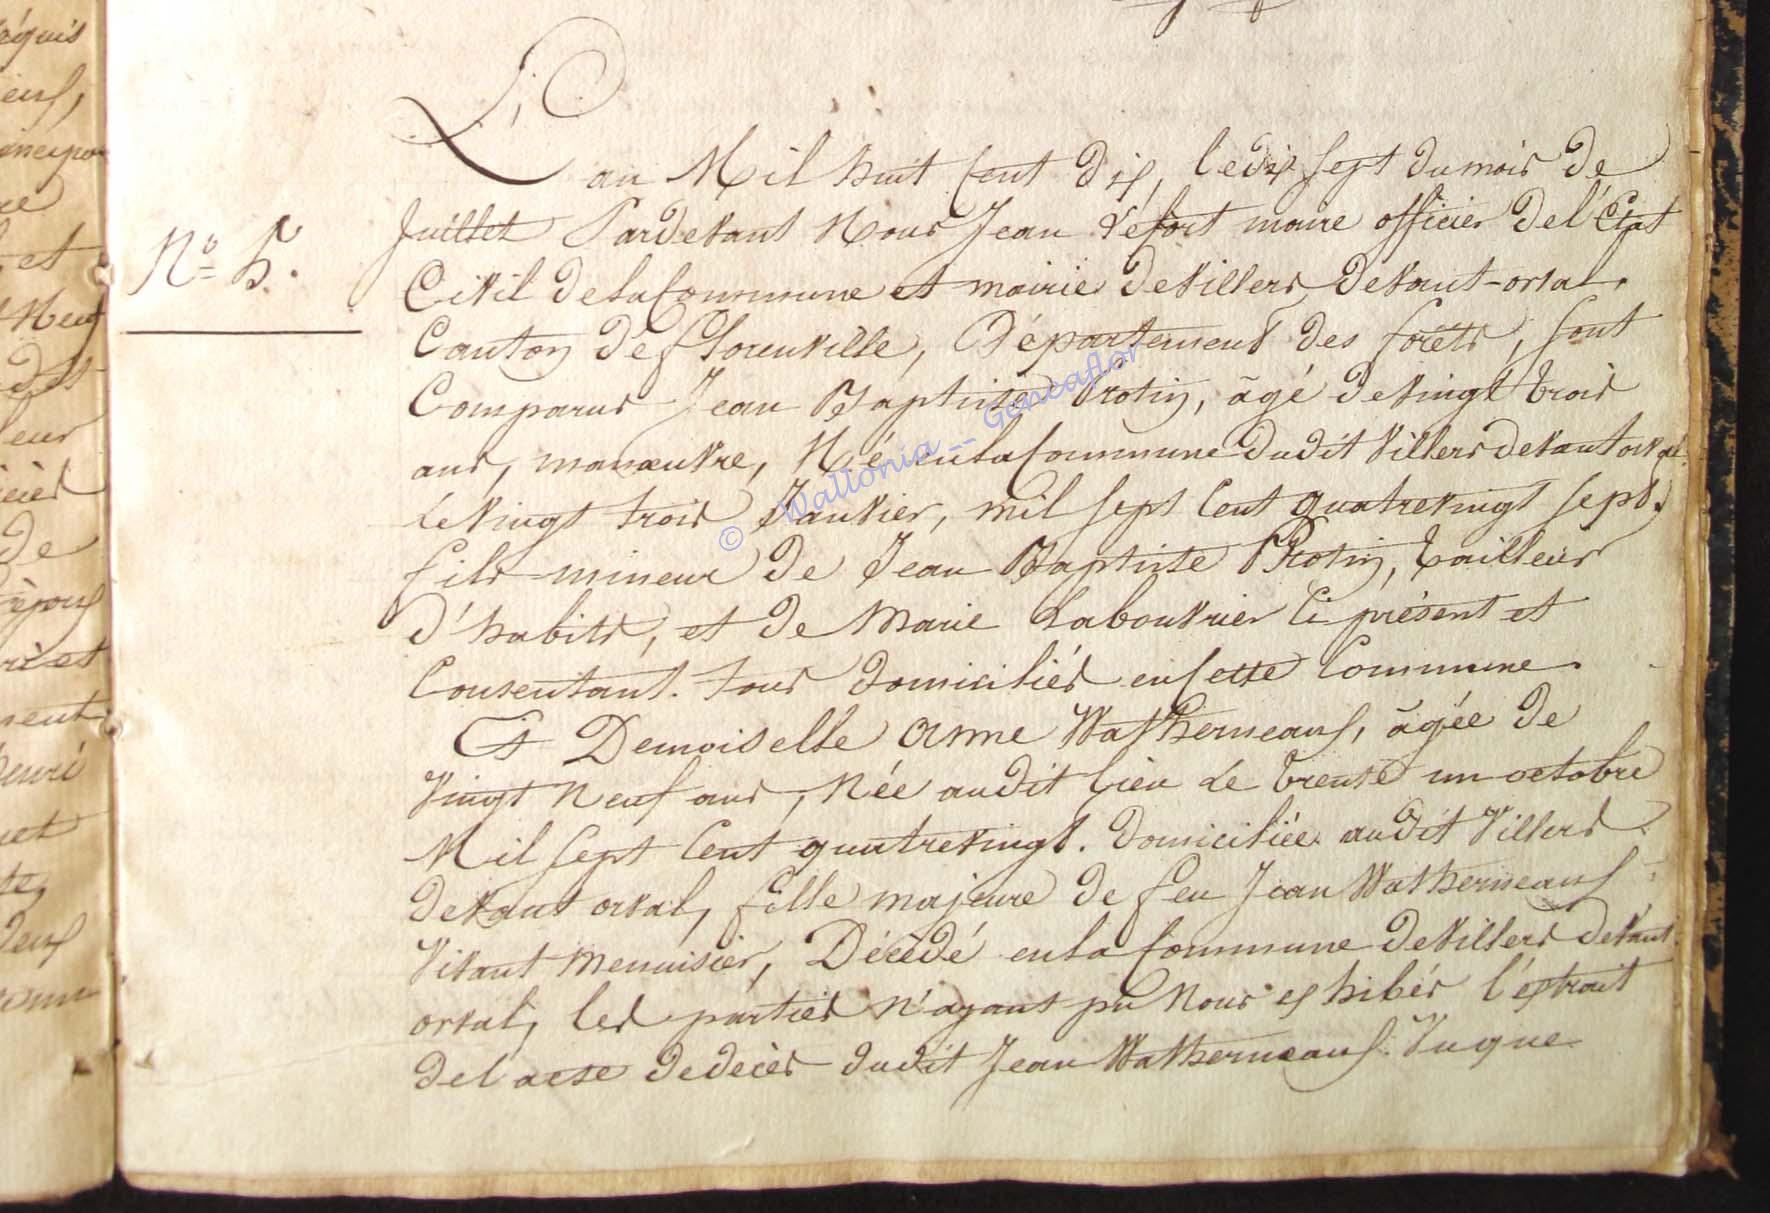 L'an Mil huit Cent dix, le dix sept du mois de
Nº 5.
Juillet Pardevant Nous Jean Lefort maire officier de l'Etat
Civil de la Commune et mairie de Villers devant-orval.
Canton de florenville, Département des forêts, sont
Comparus Jean Baptiste Protin, âgé de vingt trois
ans, manœuvre, Né en la Commune dudit Villers devant orval
le vingt trois Janvier, mil sept Cent quatrevingt sept.
fils mineur de Jean Baptiste Protin, tailleur
d'habits, et de Marie Labouvrier Ci présent et
Consentant. tous domiciliés en Cette Commune.
Et Demoiselle Anne Watherneaux, âgée de
Vingt Neuf ans, Née audit lieu le trente un octobre
Mil sept Cent quatrevingt. domiciliée audit Villers
devant orval, fille majeure de feu Jean Watherneaux
Vivant Menuisier, Décédé en la Commune de Villers devant
orval, les parties n'ayant pu Nous exhibér l'extrait
de l'acte de decès dudit Jean Watherneaux. Vu que
© Wallonia -- Geneaflor
équis
et
Neuf
leur
de
et